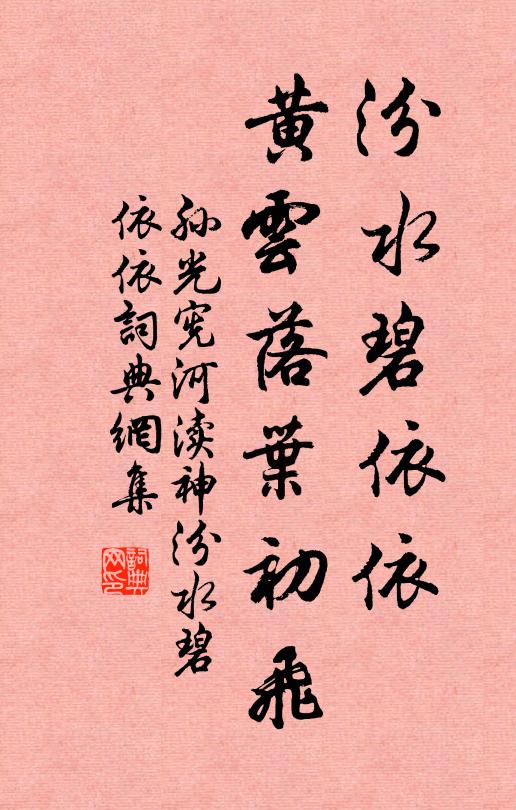 汾水碧依依
黃雲落葉初飛
孙光宪河渎神汾水碧
依依詞典網集
詞典网印